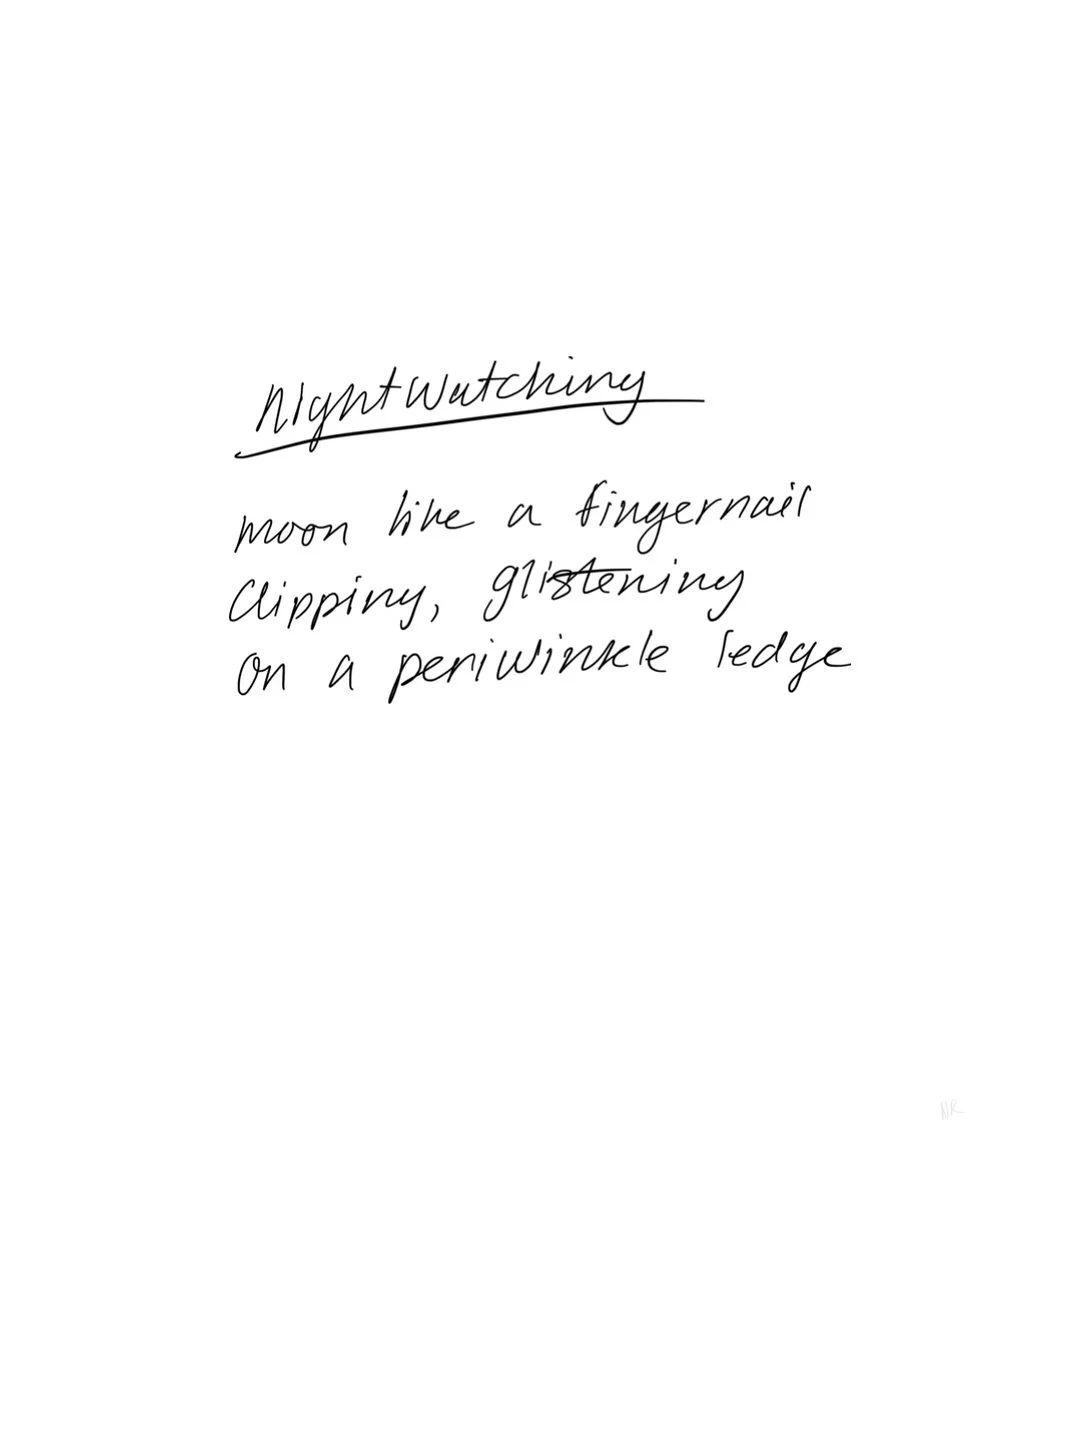 NightWatching
moon like a fingernail
Clipping, glistening
on a periwinkle ledge
NR